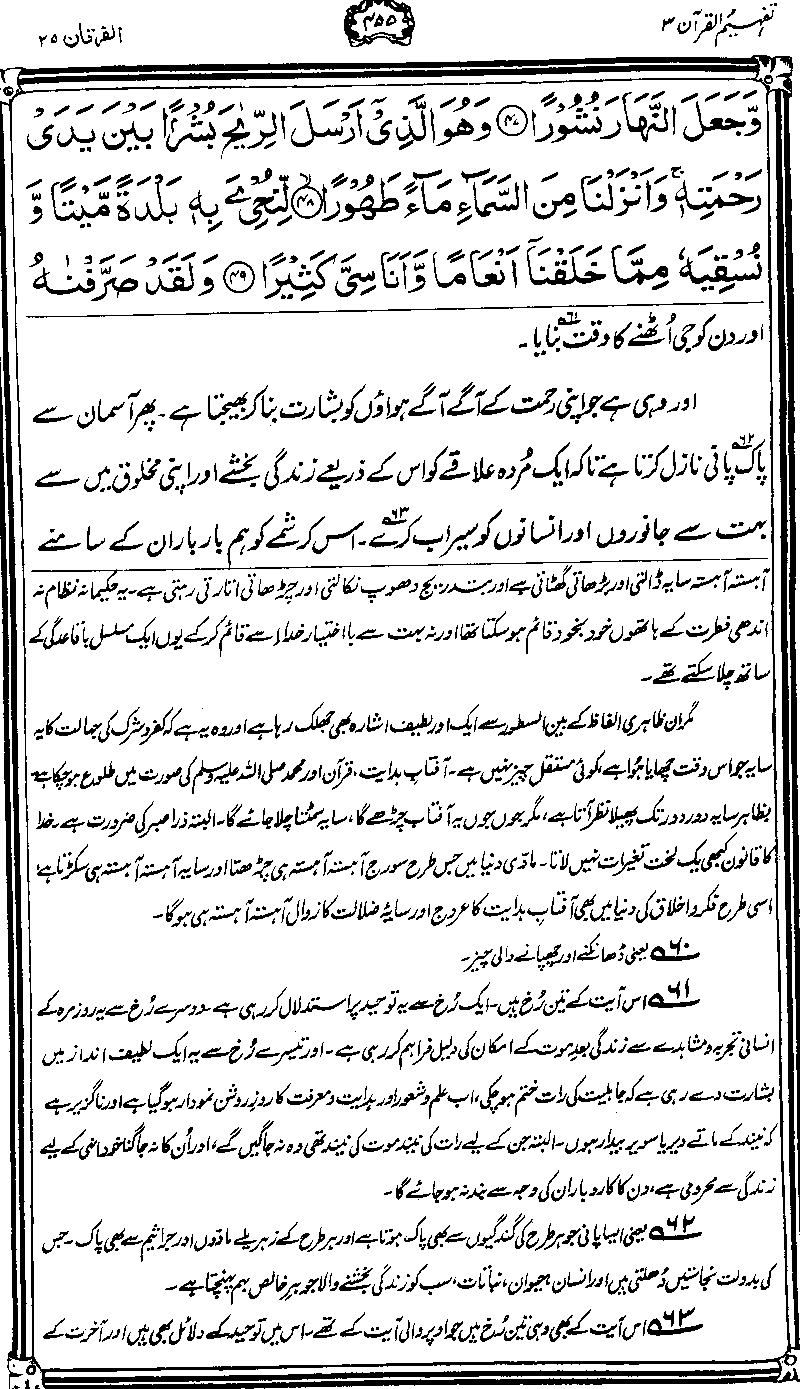 تفہیم القرآن ۳
۴۵۵
الفرقان ۲۵
وَّجَعَلَ النَّهَارَ نُشُوْرًا ﴿۴۷﴾ وَهُوَ الَّذِيْۤ اَرْسَلَ الرِّيٰحَ بُشْرًۢا بَيْنَ يَدَيْ
رَحْمَتِهٖ ۚ وَاَنْزَلْنَا مِنَ السَّمَآءِ مَآءً طَهُوْرًا ﴿۴۸﴾ لِّنُحْيِۦَ بِهٖ بَلْدَةً مَّيْتًا وَّ
نُسْقِيَهٗ مِمَّا خَلَقْنَاۤ اَنْعَامًا وَّاَنَاسِيَّ كَثِيْرًا ﴿۴۹﴾ وَلَقَدْ صَرَّفْنٰهُ
اور دن کو جی اُٹھنے کا وقت ۶۱ بنایا۔
اور وہی ہے جو اپنی رحمت کے آگے آگے ہواؤں کو بشارت بنا کر بھیجتا ہے۔ پھر آسمان سے
پاک ۶۲ پانی نازل کرتا ہے تاکہ ایک مُردہ علاقے کو اس کے ذریعے زندگی بخشے اور اپنی مخلوق میں سے
بہت سے جانوروں اور انسانوں کو سیراب کرے ۶۳۔ اس کرشمے کو ہم بار بار ان کے سامنے
آہستہ آہستہ سایہ ڈالتی اور بڑھاتی گھٹاتی ہے اور بتدریج دھوپ نکالتی اور چڑھاتی اتارتی رہتی ہے۔ یہ حکیمانہ نظام نہ
اندھی فطرت کے ہاتھوں خود بخود قائم ہو سکتا تھا اور نہ بہت سے بااختیار خدا اسے قائم کر کے یوں ایک مسلسل باقاعدگی کے
ساتھ چلا سکتے تھے۔
مگر ان ظاہری الفاظ کے بین السطور سے ایک اور لطیف اشارہ بھی جھلک رہا ہے اور وہ یہ ہے کہ کفر و شرک کی جہالت کا یہ
سایہ جو اس وقت چھایا ہوا ہے، کوئی مستقل چیز نہیں ہے۔ آفتاب ہدایت، قرآن اور محمد صلی اللہ علیہ وسلم کی صورت میں طلوع ہو چکا ہے
بظاہر سایہ دور دور تک پھیلا نظر آتا ہے، مگر جوں جوں یہ آفتاب چڑھے گا، سایہ سمٹتا چلا جائے گا۔ البتہ ذرا صبر کی ضرورت ہے۔ خدا
کا قانون کبھی یک لخت تغیرات نہیں لاتا۔ مادّی دنیا میں جس طرح سورج آہستہ آہستہ ہی چڑھتا اور سایہ آہستہ آہستہ ہی سکڑتا ہے؛
اسی طرح فکر و اخلاق کی دنیا میں بھی آفتابِ ہدایت کا عروج اور سایۂ ضلالت کا زوال آہستہ آہستہ ہی ہوگا۔
۶۰ یعنی ڈھانکنے اور چھپانے والی چیز۔
۶۱ اس آیت کے تین رُخ ہیں۔ ایک رُخ سے یہ توحید پر استدلال کر رہی ہے۔ دوسرے رُخ سے یہ روزمرہ کے
انسانی تجربہ و مشاہدے سے زندگی بعدِ موت کے امکان کی دلیل فراہم کر رہی ہے۔ اور تیسرے رُخ سے یہ ایک لطیف انداز میں
بشارت دے رہی ہے کہ جاہلیت کی رات ختم ہو چکی، اب علم و شعور اور ہدایت و معرفت کا روزِ روشن نمودار ہو گیا ہے اور ناگزیر ہے
کہ نیند کے ماتے دیر یا سویر بیدار ہوں۔ البتہ جن کے لیے رات کی نیند موت کی نیند تھی وہ نہ جاگیں گے، اور اُن کا نہ جاگنا خود انہی کے لیے
زندگی سے محرومی ہے، دن کا کاروبار ان کی وجہ سے بند نہ ہو جائے گا۔
۶۲ یعنی ایسا پانی جو ہر طرح کی گندگیوں سے بھی پاک ہوتا ہے اور ہر طرح کے زہریلے مادّوں اور جراثیم سے بھی پاک۔ جس
کی بدولت نجاستیں دُھلتی ہیں اور انسان، حیوان، نباتات، سب کو زندگی بخشنے والا جوہرِ خالص بہم پہنچتا ہے۔
۶۳ اس آیت کے بھی وہی تین رُخ ہیں جو اوپر والی آیت کے تھے۔ اس میں توحید کے دلائل بھی ہیں اور آخرت کے